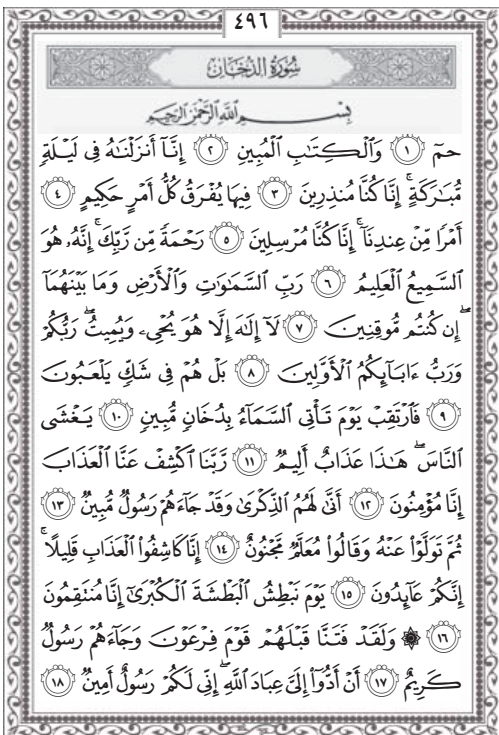 ٤٩٦
سُورَةُ الدُّخَانِ
بِسْمِ اللَّهِ الرَّحْمَٰنِ الرَّحِيمِ
حمٓ ١ وَٱلْكِتَٰبِ ٱلْمُبِينِ ٢ إِنَّآ أَنزَلْنَٰهُ فِى لَيْلَةٍ
مُّبَٰرَكَةٍ ۚ إِنَّا كُنَّا مُنذِرِينَ ٣ فِيهَا يُفْرَقُ كُلُّ أَمْرٍ حَكِيمٍ ٤
أَمْرًا مِّنْ عِندِنَآ ۚ إِنَّا كُنَّا مُرْسِلِينَ ٥ رَحْمَةً مِّن رَّبِّكَ ۚ إِنَّهُۥ هُوَ
ٱلسَّمِيعُ ٱلْعَلِيمُ ٦ رَبِّ ٱلسَّمَٰوَٰتِ وَٱلْأَرْضِ وَمَا بَيْنَهُمَآ
ۖ إِن كُنتُم مُّوقِنِينَ ٧ لَآ إِلَٰهَ إِلَّا هُوَ يُحْىِۦ وَيُمِيتُ ۖ رَبُّكُمْ
وَرَبُّ ءَابَآئِكُمُ ٱلْأَوَّلِينَ ٨ بَلْ هُمْ فِى شَكٍّ يَلْعَبُونَ
٩ فَٱرْتَقِبْ يَوْمَ تَأْتِى ٱلسَّمَآءُ بِدُخَانٍ مُّبِينٍ ١٠ يَغْشَى
ٱلنَّاسَ ۖ هَٰذَا عَذَابٌ أَلِيمٌ ١١ رَّبَّنَا ٱكْشِفْ عَنَّا ٱلْعَذَابَ
إِنَّا مُؤْمِنُونَ ١٢ أَنَّىٰ لَهُمُ ٱلذِّكْرَىٰ وَقَدْ جَآءَهُمْ رَسُولٌ مُّبِينٌ ١٣
ثُمَّ تَوَلَّوْا۟ عَنْهُ وَقَالُوا۟ مُعَلَّمٌ مَّجْنُونٌ ١٤ إِنَّا كَاشِفُوا۟ ٱلْعَذَابِ قَلِيلًا ۚ
إِنَّكُمْ عَآئِدُونَ ١٥ يَوْمَ نَبْطِشُ ٱلْبَطْشَةَ ٱلْكُبْرَىٰٓ إِنَّا مُنتَقِمُونَ
١٦ ۞ وَلَقَدْ فَتَنَّا قَبْلَهُمْ قَوْمَ فِرْعَوْنَ وَجَآءَهُمْ رَسُولٌ
كَرِيمٌ ١٧ أَنْ أَدُّوٓا۟ إِلَىَّ عِبَادَ ٱللَّهِ ۖ إِنِّى لَكُمْ رَسُولٌ أَمِينٌ ١٨